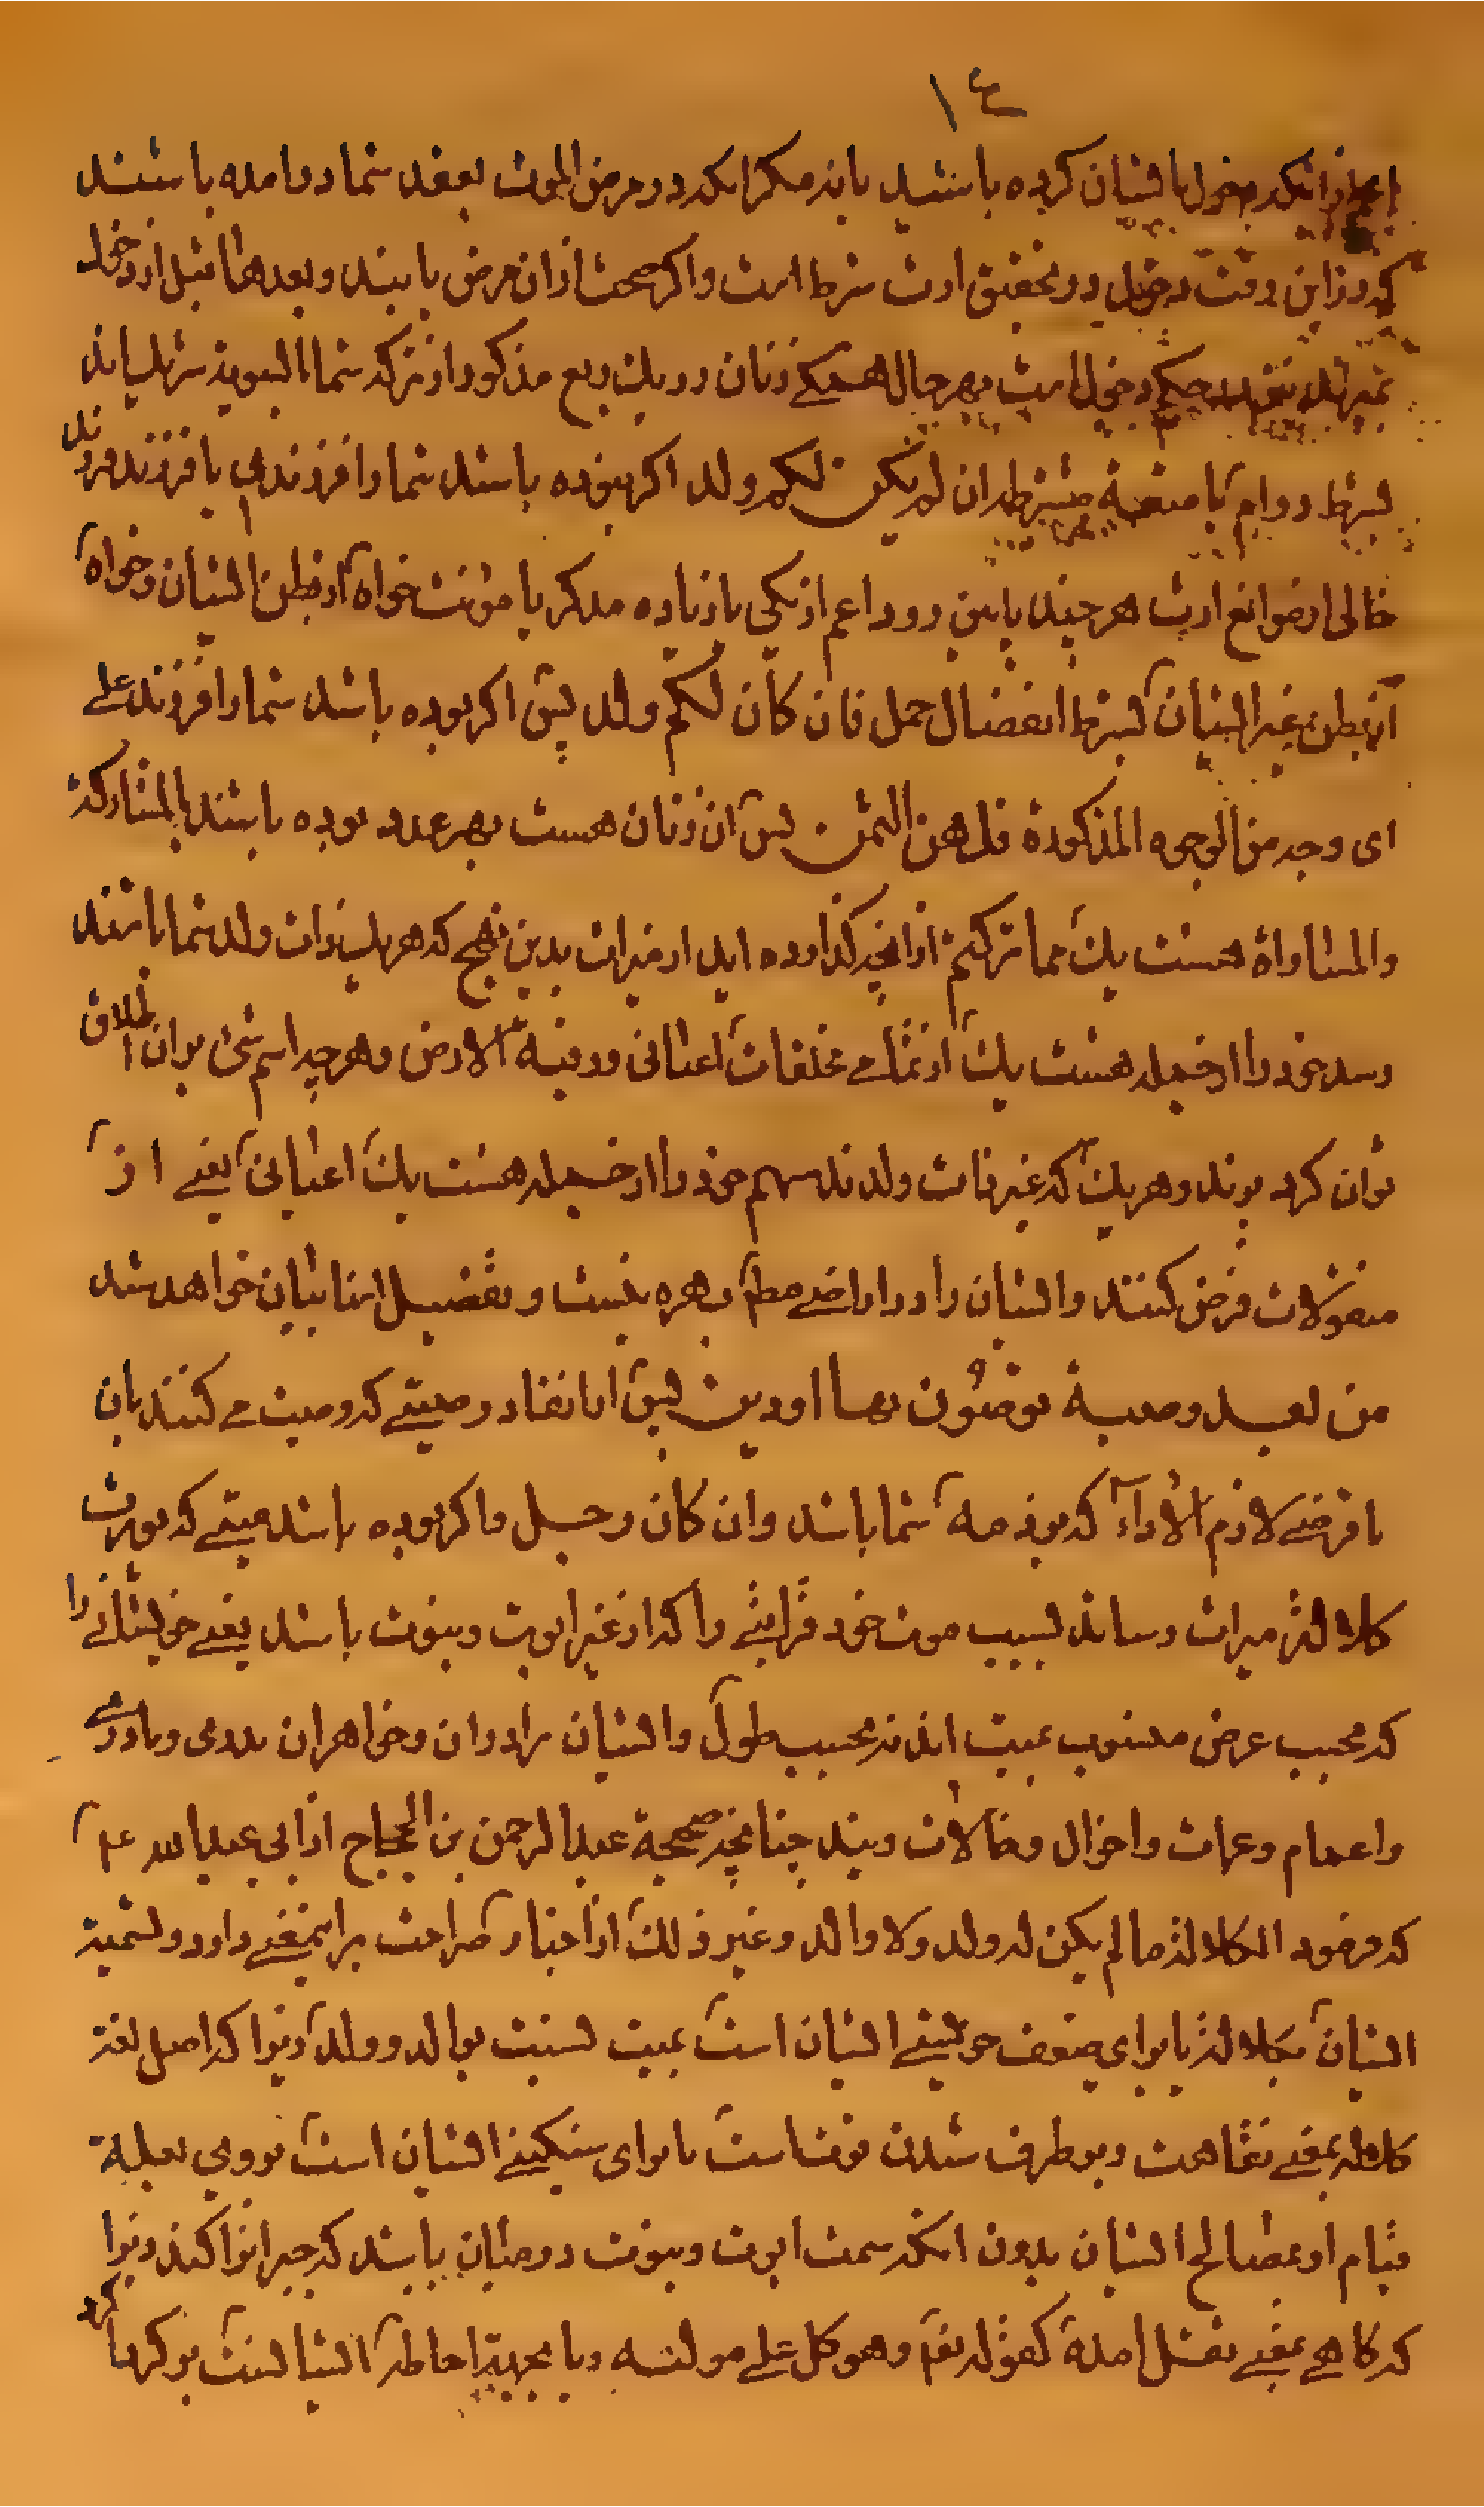 ١٤
اعم از انکه دخول با ایشان کرده باشید یا نه مکر انکه در مرض الموت بعقد شما درامده باشند
که در این وقت دخول در تحقیق ارث شرط است و اکر صحت از ان مرض یابند و بعدها قبل از دخول
بمیرند حکم دخول است بهر حال همکی زنان در یک ربع مذکور از ترکه شما بالسویه شریک‌اند
بشرط دوام یا متعه مشترطه ان لم یکن لکم ولد اکر نبوده باشد شما را فرزندی یا فرزند فرزند
خالی از موانع ارث هر چند پایین رود اعم از یکی یا زیاده مذکر یا مؤنث خواه از بطن ایشان و خواه
از بطن غیر ایشان بشرط انفصال حمل فان کان لکم ولد پس اکر بوده باشد شما را فرزند علی
ای وجه من الوجوه المذکورة فلهن الثمن پس ان زنان هست بهر عدد بوده باشند بالمشارکة
والمساواة هشت یک مما ترکتم از انچه کذارده اید از میراث بدین نهج که هر یک ذوات ولد شما باشند
رسد خود را از جمله هشت یک از تمامی مخلفات اعیانی و رقبه الارض و هر چه اسم شیء بر ان اطلاق
توان کرد برند و هر یک که غیر ذات ولدند سهم خود را از جمله هشت یک اعیانی یعنی از
منقولات فرض کنند و ایشان را در اراضی مطلقا بهره نیست و تفصیل اینها بیان خواهد شد
من بعد وصیة توصون بها او دین پس از انفاذ وصیتی که وصیت می کنند بان
یا قرضی لازم الاداء که بر ذمه شما باشد وان کان رجل و اکر بوده باشد میتی که یورث
کلالة میراث رساند بسبب موت خود قرابتی را که از غیر ابوت و بنوت باشد یعنی خویشانی را
که بحسب عرض منسوب بمیت اند نه بحسب طول و ایشان برادران و خواهران پدری و مادری
و اعمام و عمات و اخوال و خالات ویند چنانچه صحیحة عبد الرحمن بن الحجاج از ابی عبد الله ع
که فرمود الکلالة ما لم یکن له ولد ولا والد و غیر ذلک از اخبار صراحت بر اینمعنی دارد و تسمیه
ایشان بکلالة یا برای ضعف خویشی ایشان است بمیت نسبت بوالد و ولد زیرا که اصل لغة
کلاله بمعنی نقاهت و برطرف شدن قوتست یا برای سنکینی ایشان است بر وی بعلة
قیام او بمصالح ایشان بدون انکه سمت ابوت و بنوت در میان باشد که جبر انرا کند زیرا
که کاهی بمعنی ثقل امده کقوله تعالی وهو کل علی مولیه و یا بجهة احاطه ایشانست بر کرداکرد